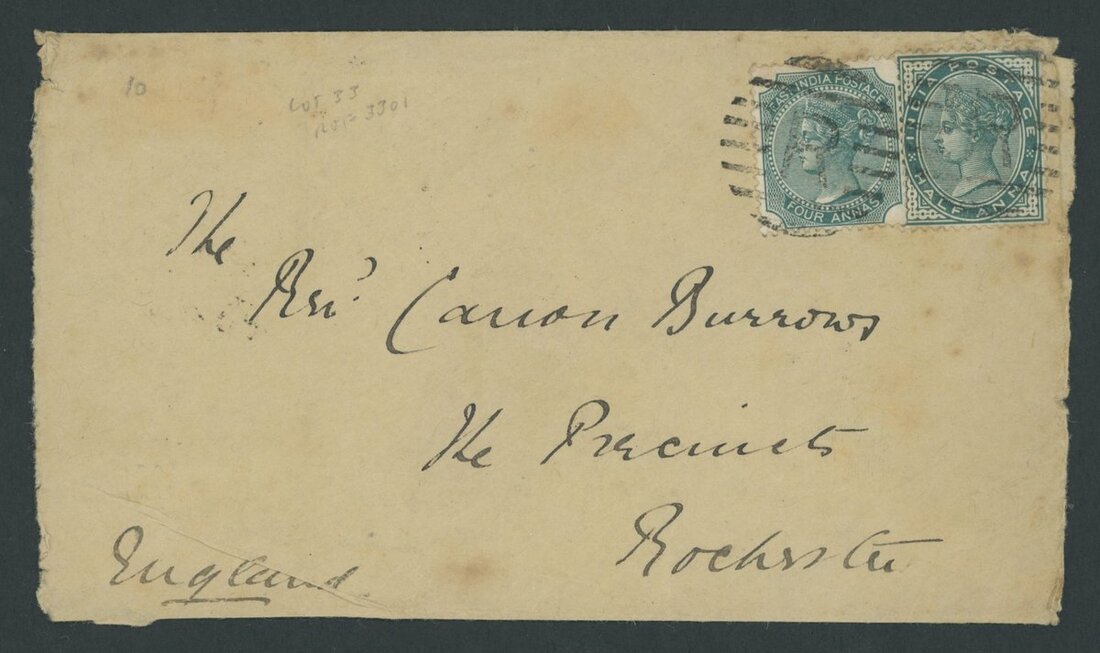 10
LOT 33
REF 3301
EAST INDIA POSTAGE
FOUR ANNAS
INDIA POSTAGE
HALF ANNA
The
Revd. Canon Burrows
The Precincts
Rochester
England